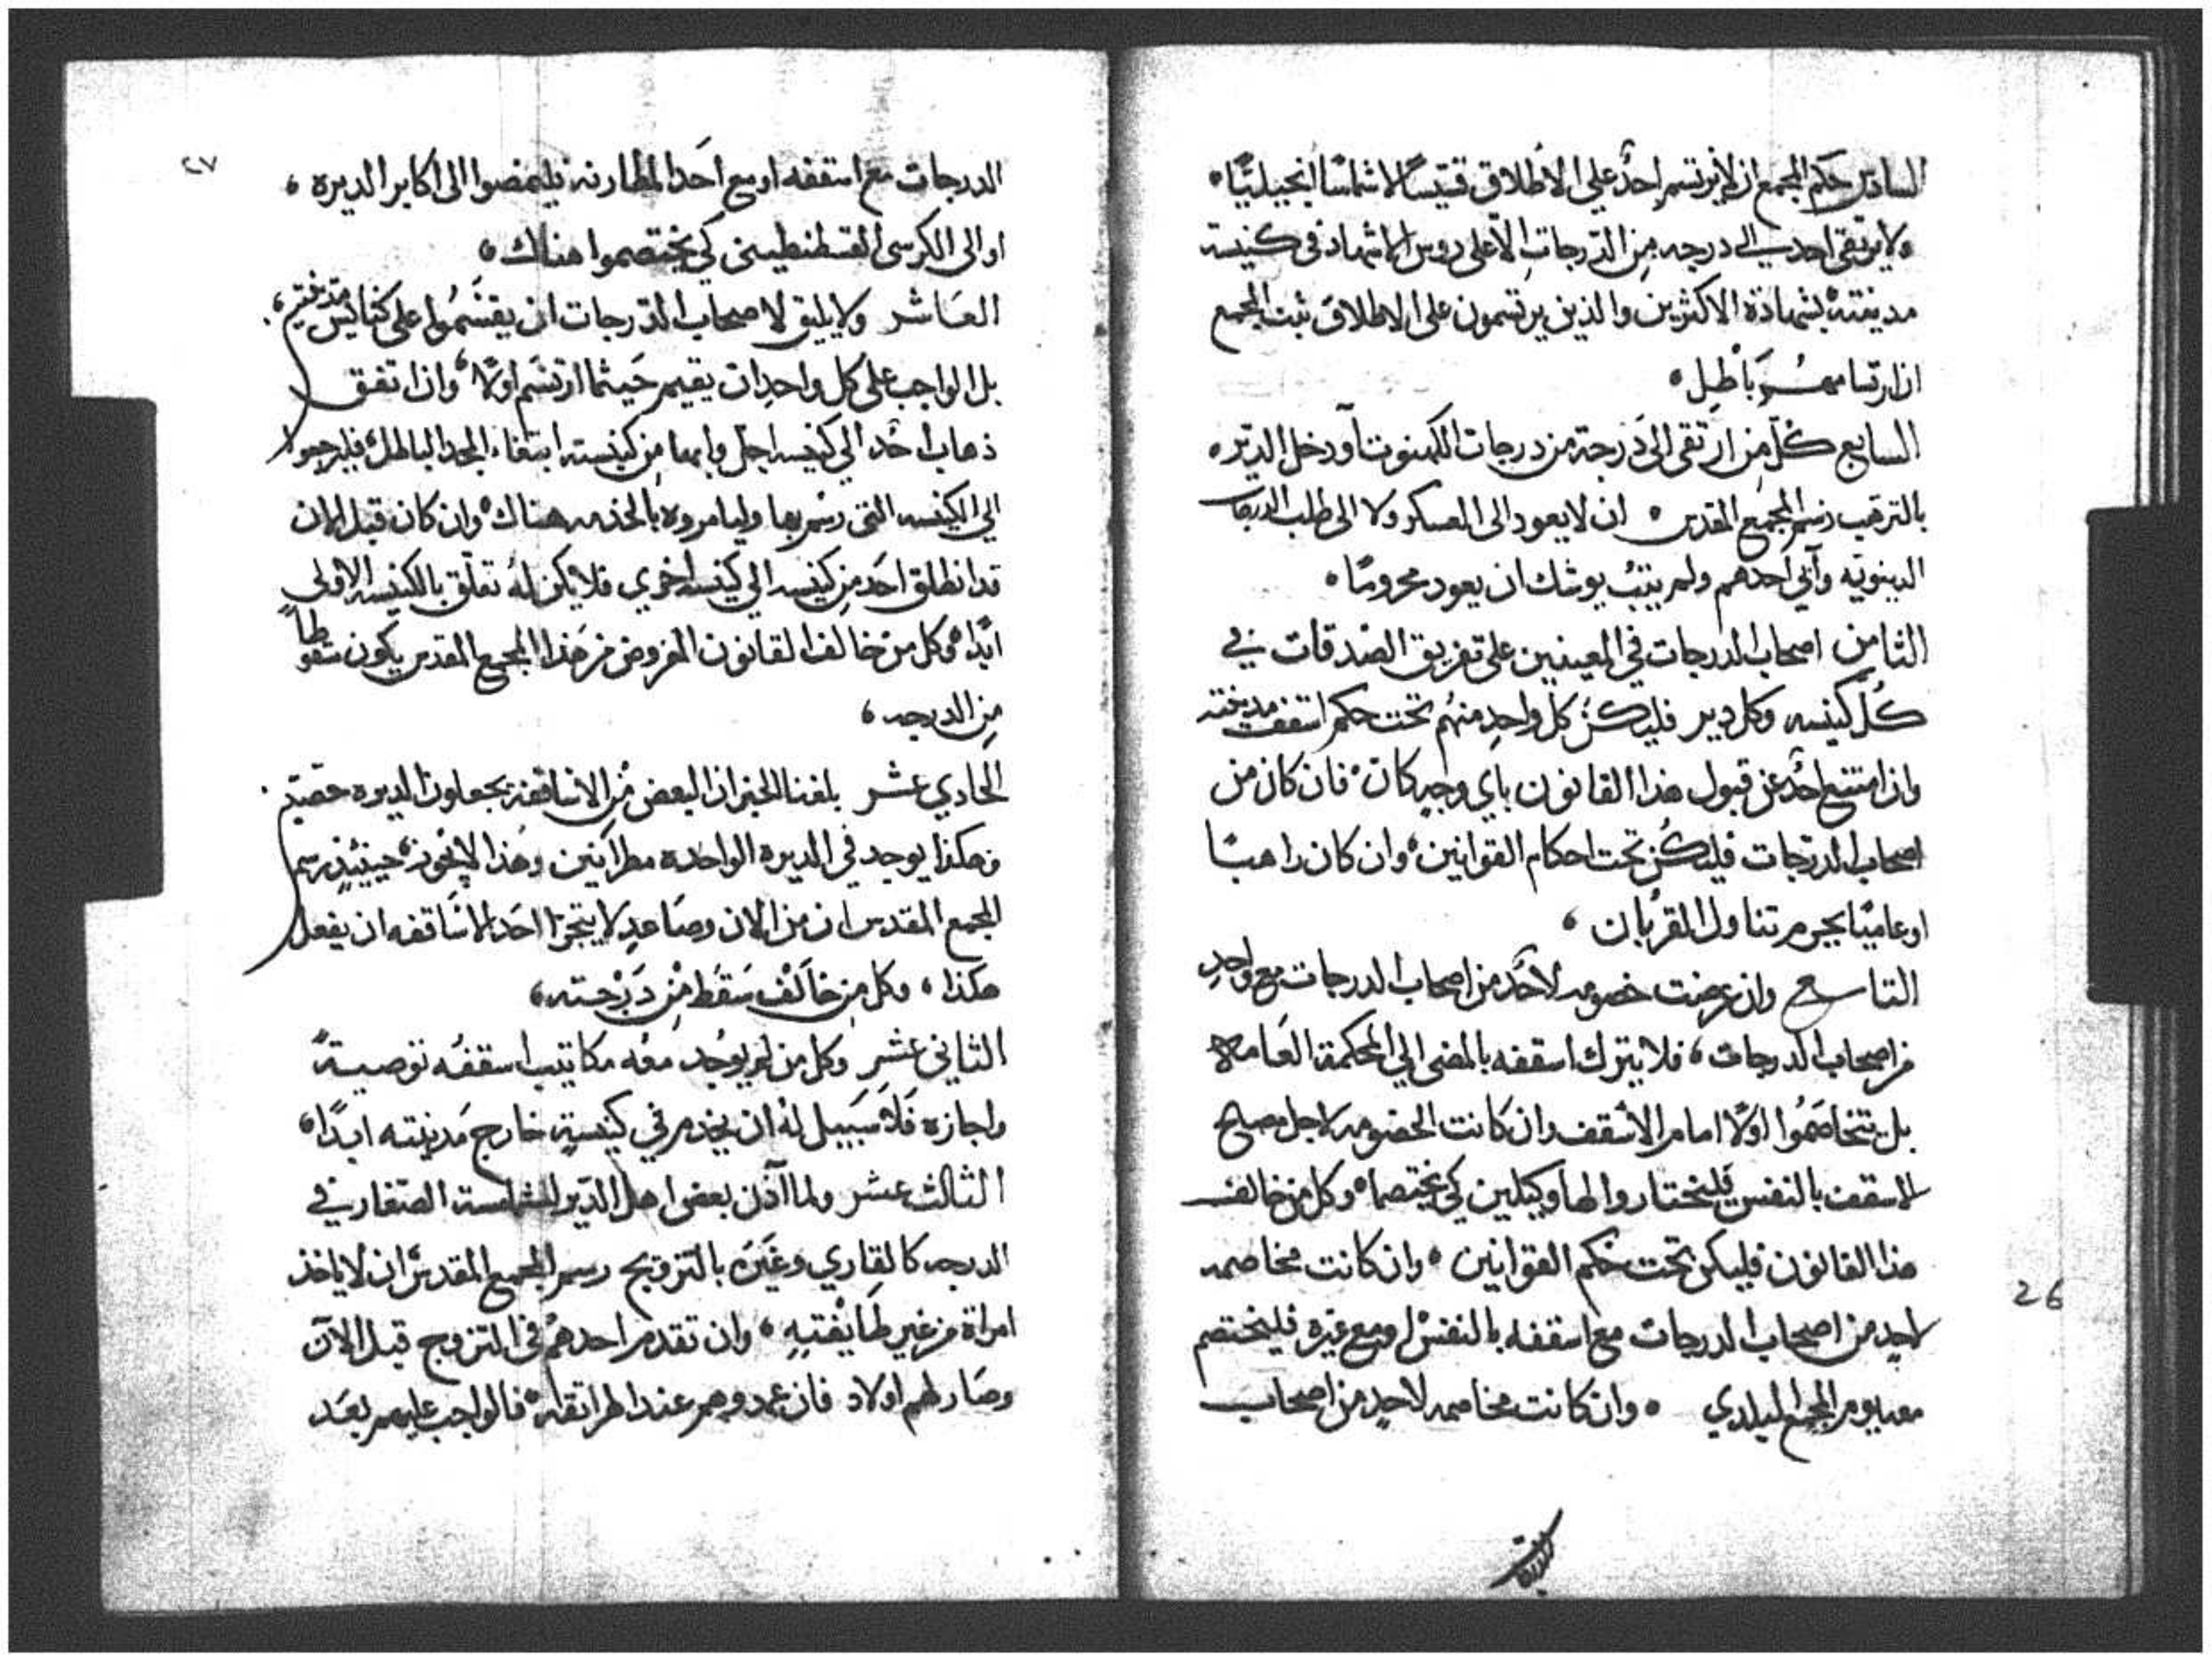 السادس حكم المجمع ان لا يرتسم احدٌ علي الاطلاق قسّيسًا لا شماسًا انجيليًّا
ولا يرتقي احد الي درجه مِن الدّرجاتِ الّا على روس الاشهاد في كنيسة
مدينته بشهادة الاكثرين والذين يرتسمون على الاطلاق ثبت المجمع
ان ارتسامهم بَاْطِل
السابع كلّ مِن ارتقى الىَ دَرجة من درجات الكهنوت أو دخل الديّر
بالترهّب رسم المجمع المقدس ان لا يعود الى العسكر ولا الى طلب الدرجات
الدينويّه وآبي احدهم ولم يتبُ يوشك ان يعود محرومًا
الثامن اصحاب الدرجات في المعينين على تفريق الصّدقات في
كُلّ كنيسه وكل دير فليكن كلّ واحدٍ منهُم تحت حكم اسقف مدينته
وان امتنع احدٌ عن قبول هذا القانون باي وجهٍ كان فان كان من
اصحاب الدرّجات فليكُن تحت احكام القوانين وان كان راهبًا
او عاميًا يحرم تناول القربان
التاسع وان عرضت خصومه لاحَد من اصحاب الدرجات مع واحدٍ
من اصحاب الدرجات فلا يترك اسقفه بالمضى الي المحكمة العَامة
بل يتخاصَمُوا اوّلًا امام الاسقف وان كانت الخصومه لاجل مصالح
الاسقف بالنفس فليختاروا لها وكيلين كي يختصما وكل من خالف
هذا القانون فليكن تحت حُكم القوانين وان كانت مخاصمه
لاحدٍ من اصحاب الدرجات مع اسقفه بالنفس او مع غيره فليختصم
معه يوم المجمع البلدي وان كانت مخاصمه لاحدٍ من اصحاب
26
٢٧
الدرجات مع اسقفه او مع احَد المطارنه فليمضوا الى اكابر الديره
او الى الكرسى القسطنطيني كي يختصموا هناك
العَاشر ولا يليق لاصحاب الدّرجات ان يقسَمُوا على كنائس مدينتين
بل الواجب على كل واحدٍ ان يقيم حَيثما ارتسَم اوّلًا وان اتفق
ذهاب احد الي كنيسه اجلّ وابها مِن كنيسته ابتغاء المجد الباطل فليرجعوا
الي الكنيسه التي رسم بها وليامروه بالخدمه هناك وان كان قبل الان
قد انطلق احَد مِن كنيسه الي كنيسه اخري فلا يكن لهُ تعلّق بالكنيسه الاولى
ابدًا وكل من خالف القانون المفروض من هَذا المجمع المقدس يكون سقوطاً
مِن الدرجه
الحادي عشر بلغنا الخبر ان البعض مْن الاساقفه يجعلون الديره حصّته
وهكذا يوجد في الديره الواحده مطرانين وهُذا لا يجوز حينئيذٍ رسم
المجمع المقدس ان من الان وصَاعدٍ لا يتجرّا احَد الاسَاقفه ان يفعل
هكذا وكل من خالَف سَقَط مْن دَرَجته
الثاني عشر وكل من لم يوُجد معُه مكاتيب اسقفُه توصيةً
واجازه فَلَا سَبيل لهُ ان يخدم في كنيسةٍ خارج مَدينته ابدًا
الثالث عشر ولما آذن بعض اهل الدّير للشمامسة الصّغار في
الدرجه كالقاري وغَيَره بالتزويج رسم المجمع المقدس ان لا ياخذ
امراة من غير طَايْفتهِ وان تقدم احدهُم في التزوج قبل الان
وصَار لهم اولاد فان عمدوهم عند الهراتقه فالواجب عليهم بعَد